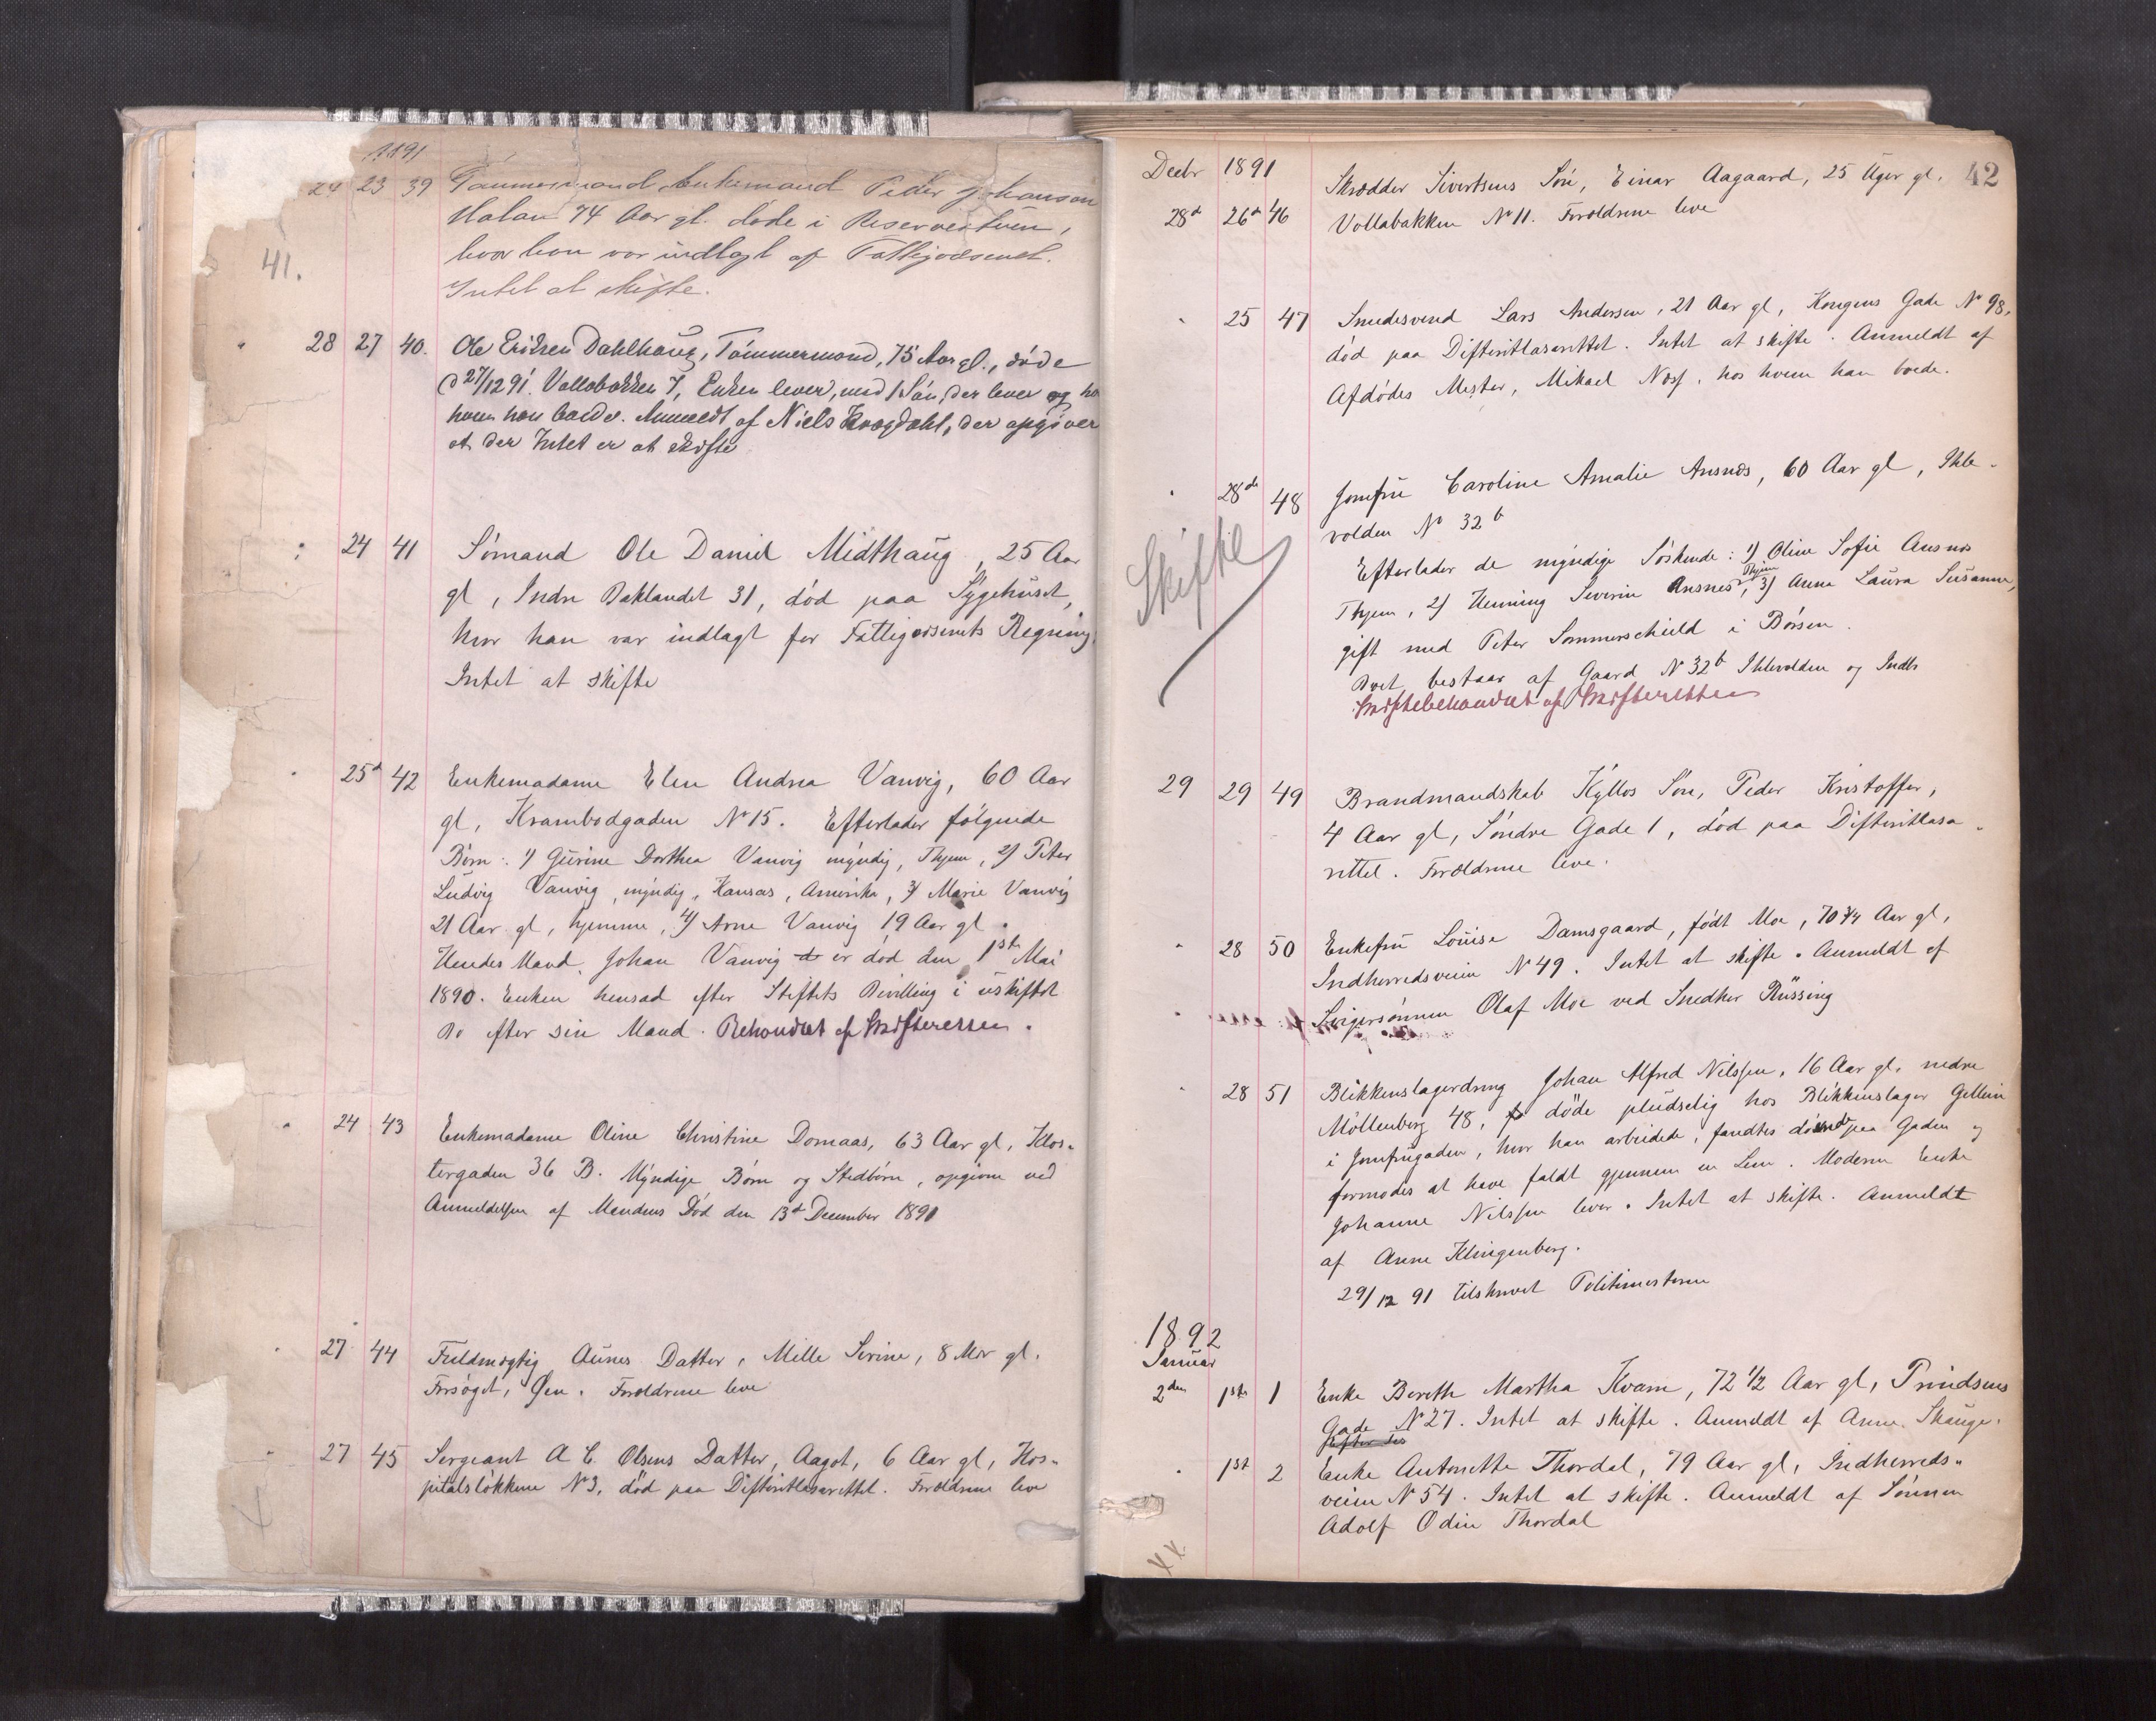 1891
24 23 39 Tømmermand Enkemand Peder Johansen
Halan 74 Aar gl. døde i Reservestuen,
hvor han var indlagt af Fattigvæsenet.
Intet at skifte.
41.
28 27 40. Ole Eriksen Dahlhaug, Tømmermand, 75 Aar gl., døde
d 27/12 91. Vollabakken 7, Enken lever, med 1 Søn, der lever og ho
hvem han boede. Anmeldt af Niels Krogdahl, der opgiver
at der Intet er at skifte
24 41 Sømand Ole Daniel Midthaug, 25 Aar
gl, Indre Baklandet 31, død paa Sygehuset,
hvor han var indlagt for Fattigvæsenets Regning.
Intet at skifte
25d 42 Enkemadame Elen Andrea Vanvig, 60 Aar
gl, Krambodgaden No 15. Efterlader følgende
Børn: 1) Gurine Dorthea Vanvig myndig, Thjem, 2) Peter
Ludvig Vanvig, myndig, Kansas, Amerika, 3) Marie Vanvig
21 Aar gl, hjemme, 4) Arne Vanvig 19 Aar gl.
Hendes Mand, Johan Vanvig d er død den 1ste Mai
1890. Enken hensad efter Stiftets Bevilling i uskiftet
Bo efter sin Mand. Behandlet af Skifteretten.
24 43 Enkemadame Oline Christine Domaas, 63 Aar gl, Klos-
tergaden 36 B. Myndige Børn og Stedbørn, opgivne ved
Anmeldelsen af Mandens Død den 13d December 1891
27 44 Fuldmægtig Aunes Datter, Mille Serine, 8 Mdr gl.
Forsøget, Øen. Forældrene leve
27 45 Sergeant A C. Olsens Datter, Aagot, 6 Aar gl, Hos-
pitalsløkken No 3, død paa Difteritlasarettet. Forældrene leve
42
Decbr 1891 Skrædder Sivertsens Søn, Einar Aagaard, 25 Uger gl.
28d 26d 46 Vollabakken No 11. Forældrene leve
25 47 Smedesvend Lars Andersen, 21 Aar gl, Kongens Gade No 98,
død paa Difteritlasarettet. Intet at skifte. Anmeldt af
Afdødes Mester, Mikael Næss, hos hvem han boede.
28de 48 Jomfru Caroline Amalie Ansnæs, 60 Aar gl, Ihle-
volden No 32 b
Skifte
Efterlader de myndige Søskende: 1) Oline Sofie Ansnæs
Thjem, 2) Henning Severin Ansnes Thjem, 3) Anna Laura Susanna,
gift med Peter Sommerschield i Børsen.
Boet bestaar af Gaard No 32 b Ihlevolden og Indbo
Skiftebehandlet af Skifteretten
29 29 49 Brandmandskab Kyllos Søn, Peder Kristoffer,
4 Aar gl, Søndre Gade 1, død paa Difteritlasa-
rettet. Forældrene leve.
28 50 Enkefru Louise Damsgaard, født Moe, 70 3/4 Aar gl,
Indherredsveien No 49. Intet at skifte. Anmeldt af
Svigersønnen Olaf Moe ved Snedker Rüssing
28 51 Blikkenslagerdreng Johan Alfred Nilssen, 16 Aar gl. nedre
Møllenberg 48, døde pludselig hos Blikkenslager Gellein
i Jomfrugaden, hvor han arbeidede, fandtes døende paa Gaden og
formodes at have faldt gjennem en Lem. Moderen Enke
Johanne Nilssen lever. Intet at skifte. Anmeldt
af Anne Klingenberg.
29/12 91 tilskrevet Politimesteren
1892
Januar
2den 1ste 1 Enke Berethe Martha Kvam, 72 1/2 Aar gl, Prindsens
Gade No 27. Intet at skifte. Anmeldt af Anne Skauge.
1st 2 Enke Antonette Thordal, 79 Aar gl, Indherreds-
veien No 54. Intet at skifte. Anmeldt af Sønnen
Adolf Odin Thordal
XX